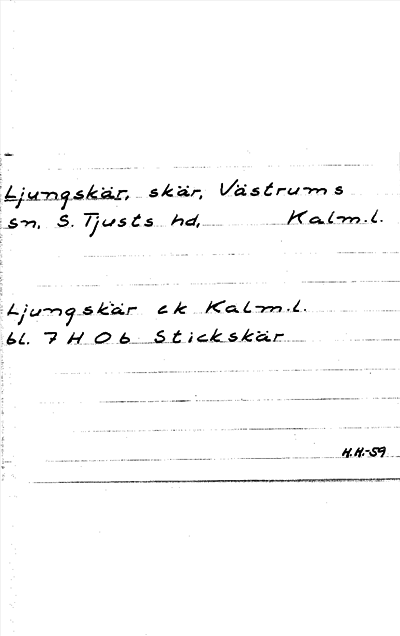 Ljungskär, skär, Västrums
sn, S. Tjusts hd, Kalm.l.
Ljungskär ek Kalm.l.
bl. 7 H O b Stickskär
H.H.-59